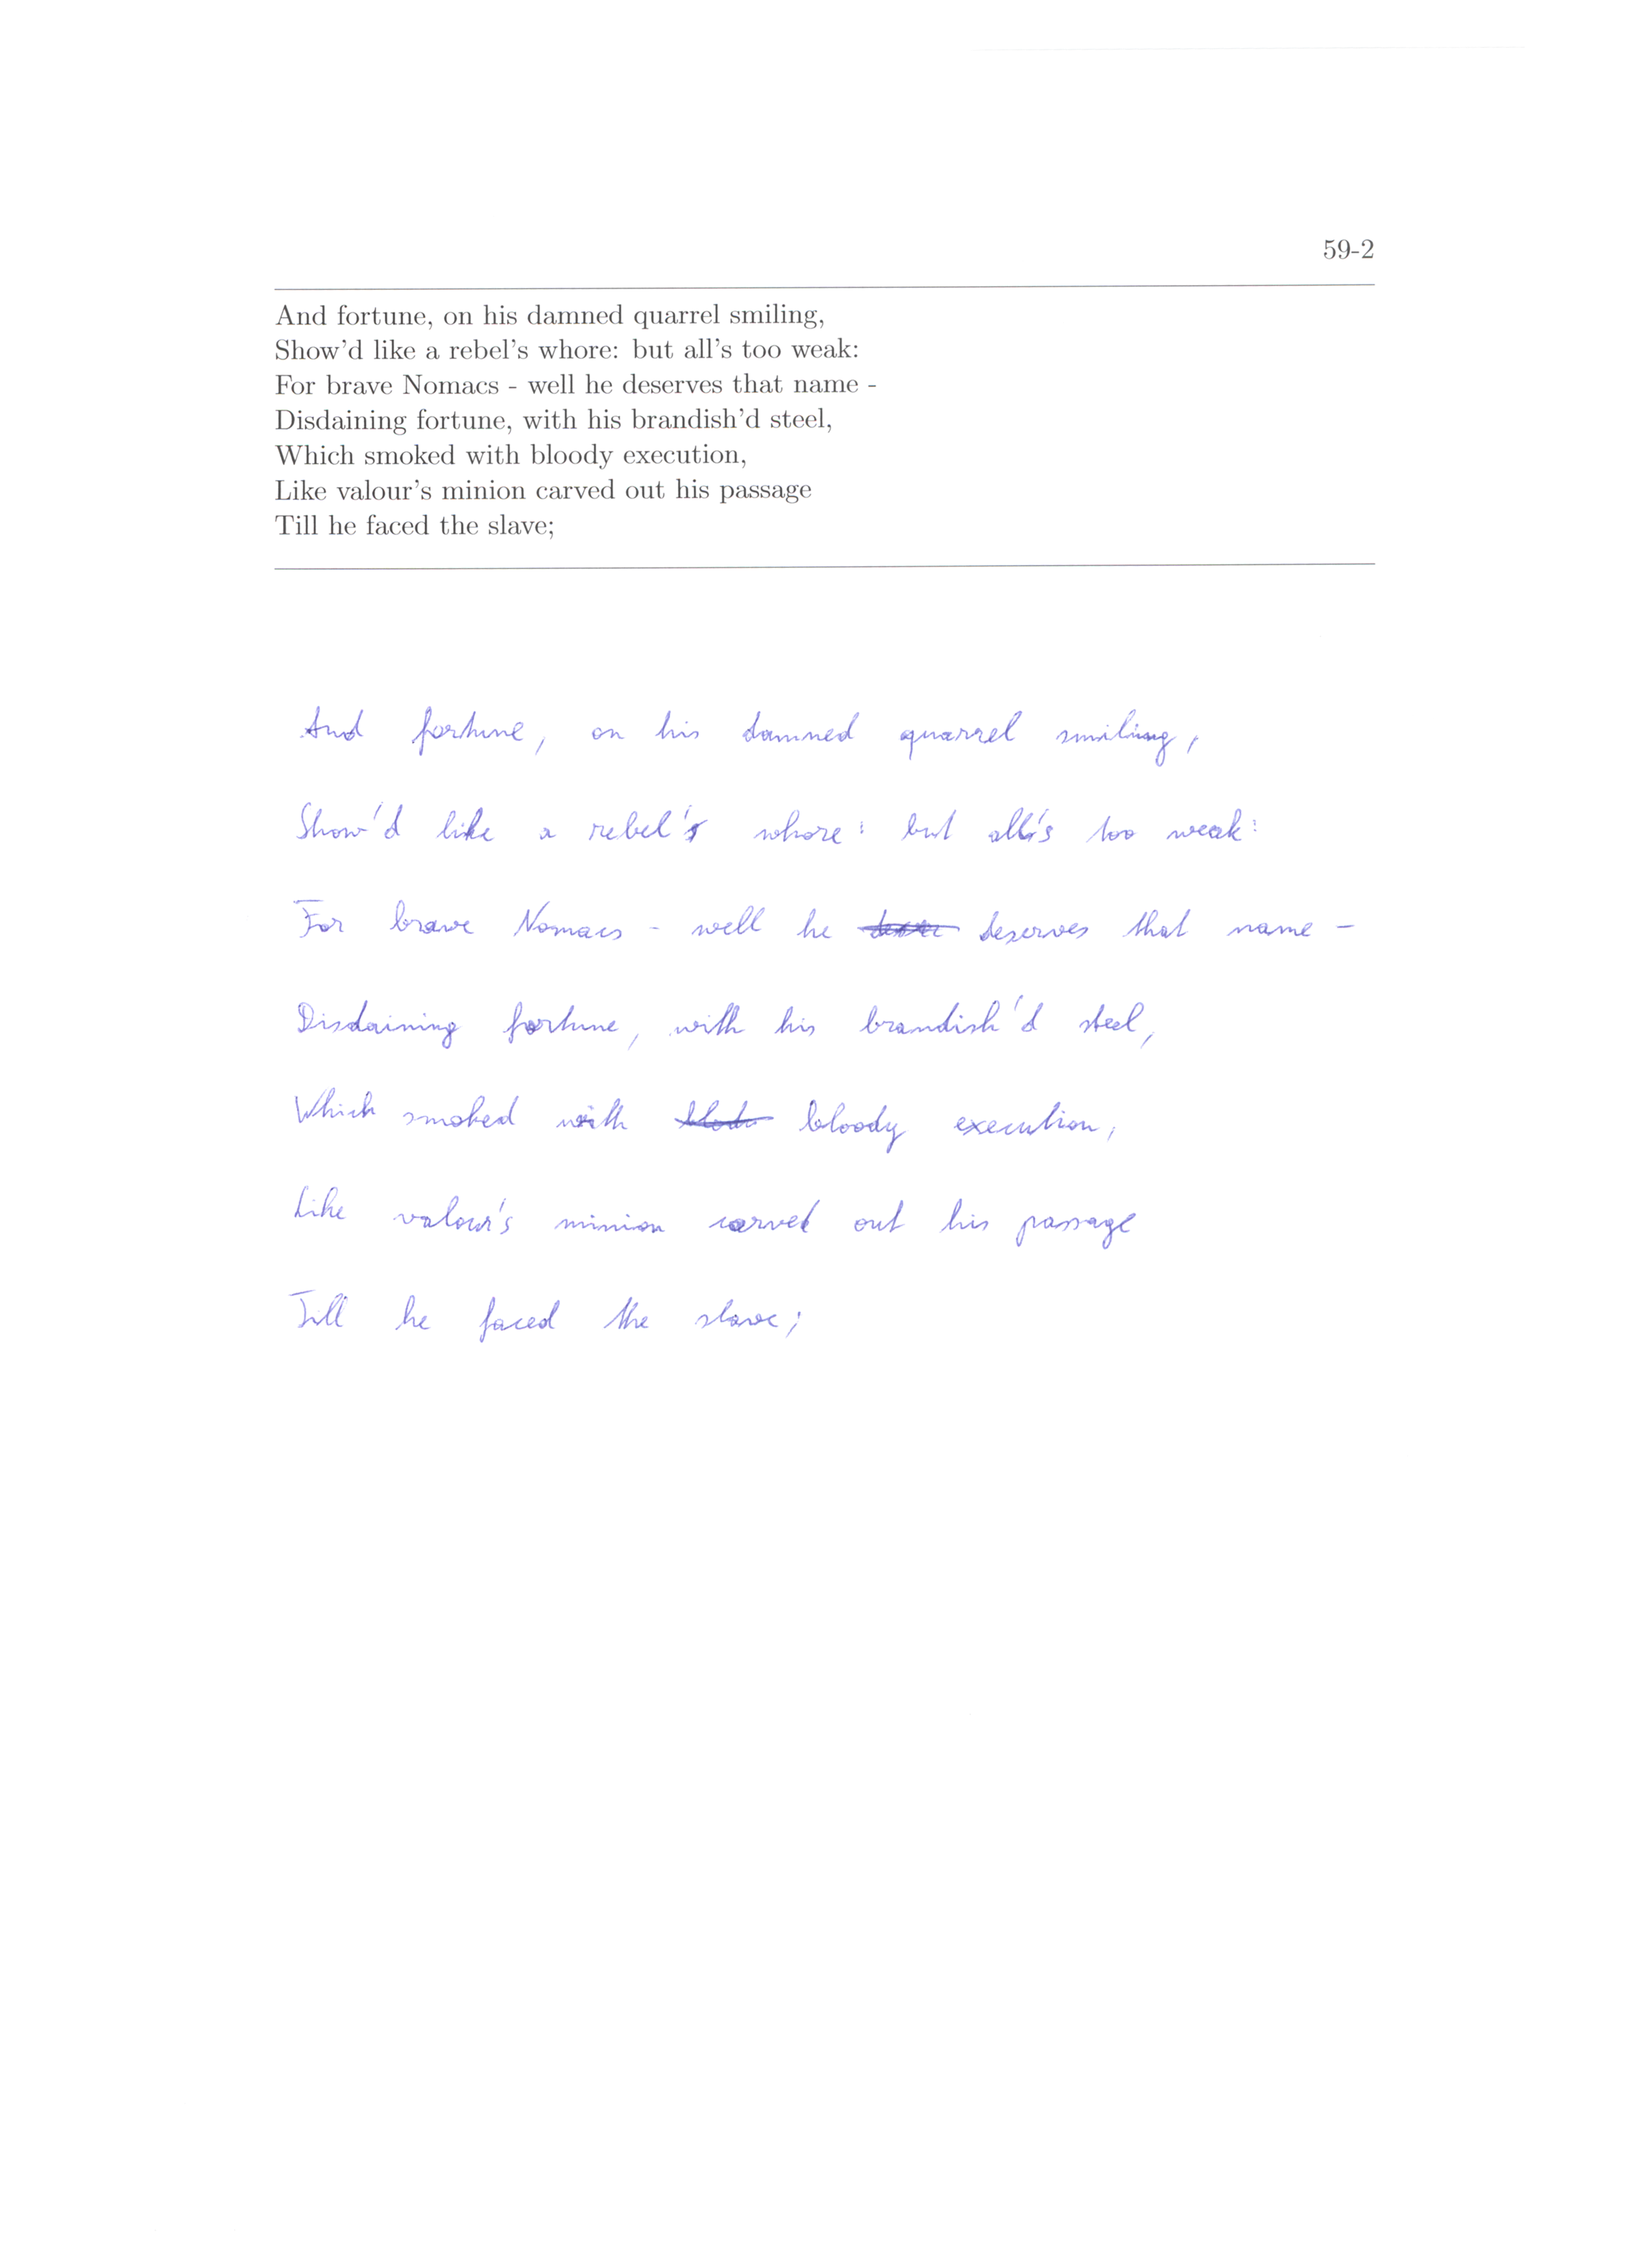 59-2
And fortune, on his damned quarrel smiling,
Show'd like a rebel's whore: but all's too weak:
For brave Nomacs - well he deserves that name -
Disdaining fortune, with his brandish'd steel,
Which smoked with bloody execution,
Like valour's minion carved out his passage
Till he faced the slave;
And fortune, on his damned quarrel smiling,
Show'd like a rebel's whore: but all's too weak:
For brave Nomacs - well he deserves that name -
Disdaining fortune, with his brandish'd steel,
Which smoked with bloody execution,
Like valour's minion carved out his passage
Till he faced the slave;